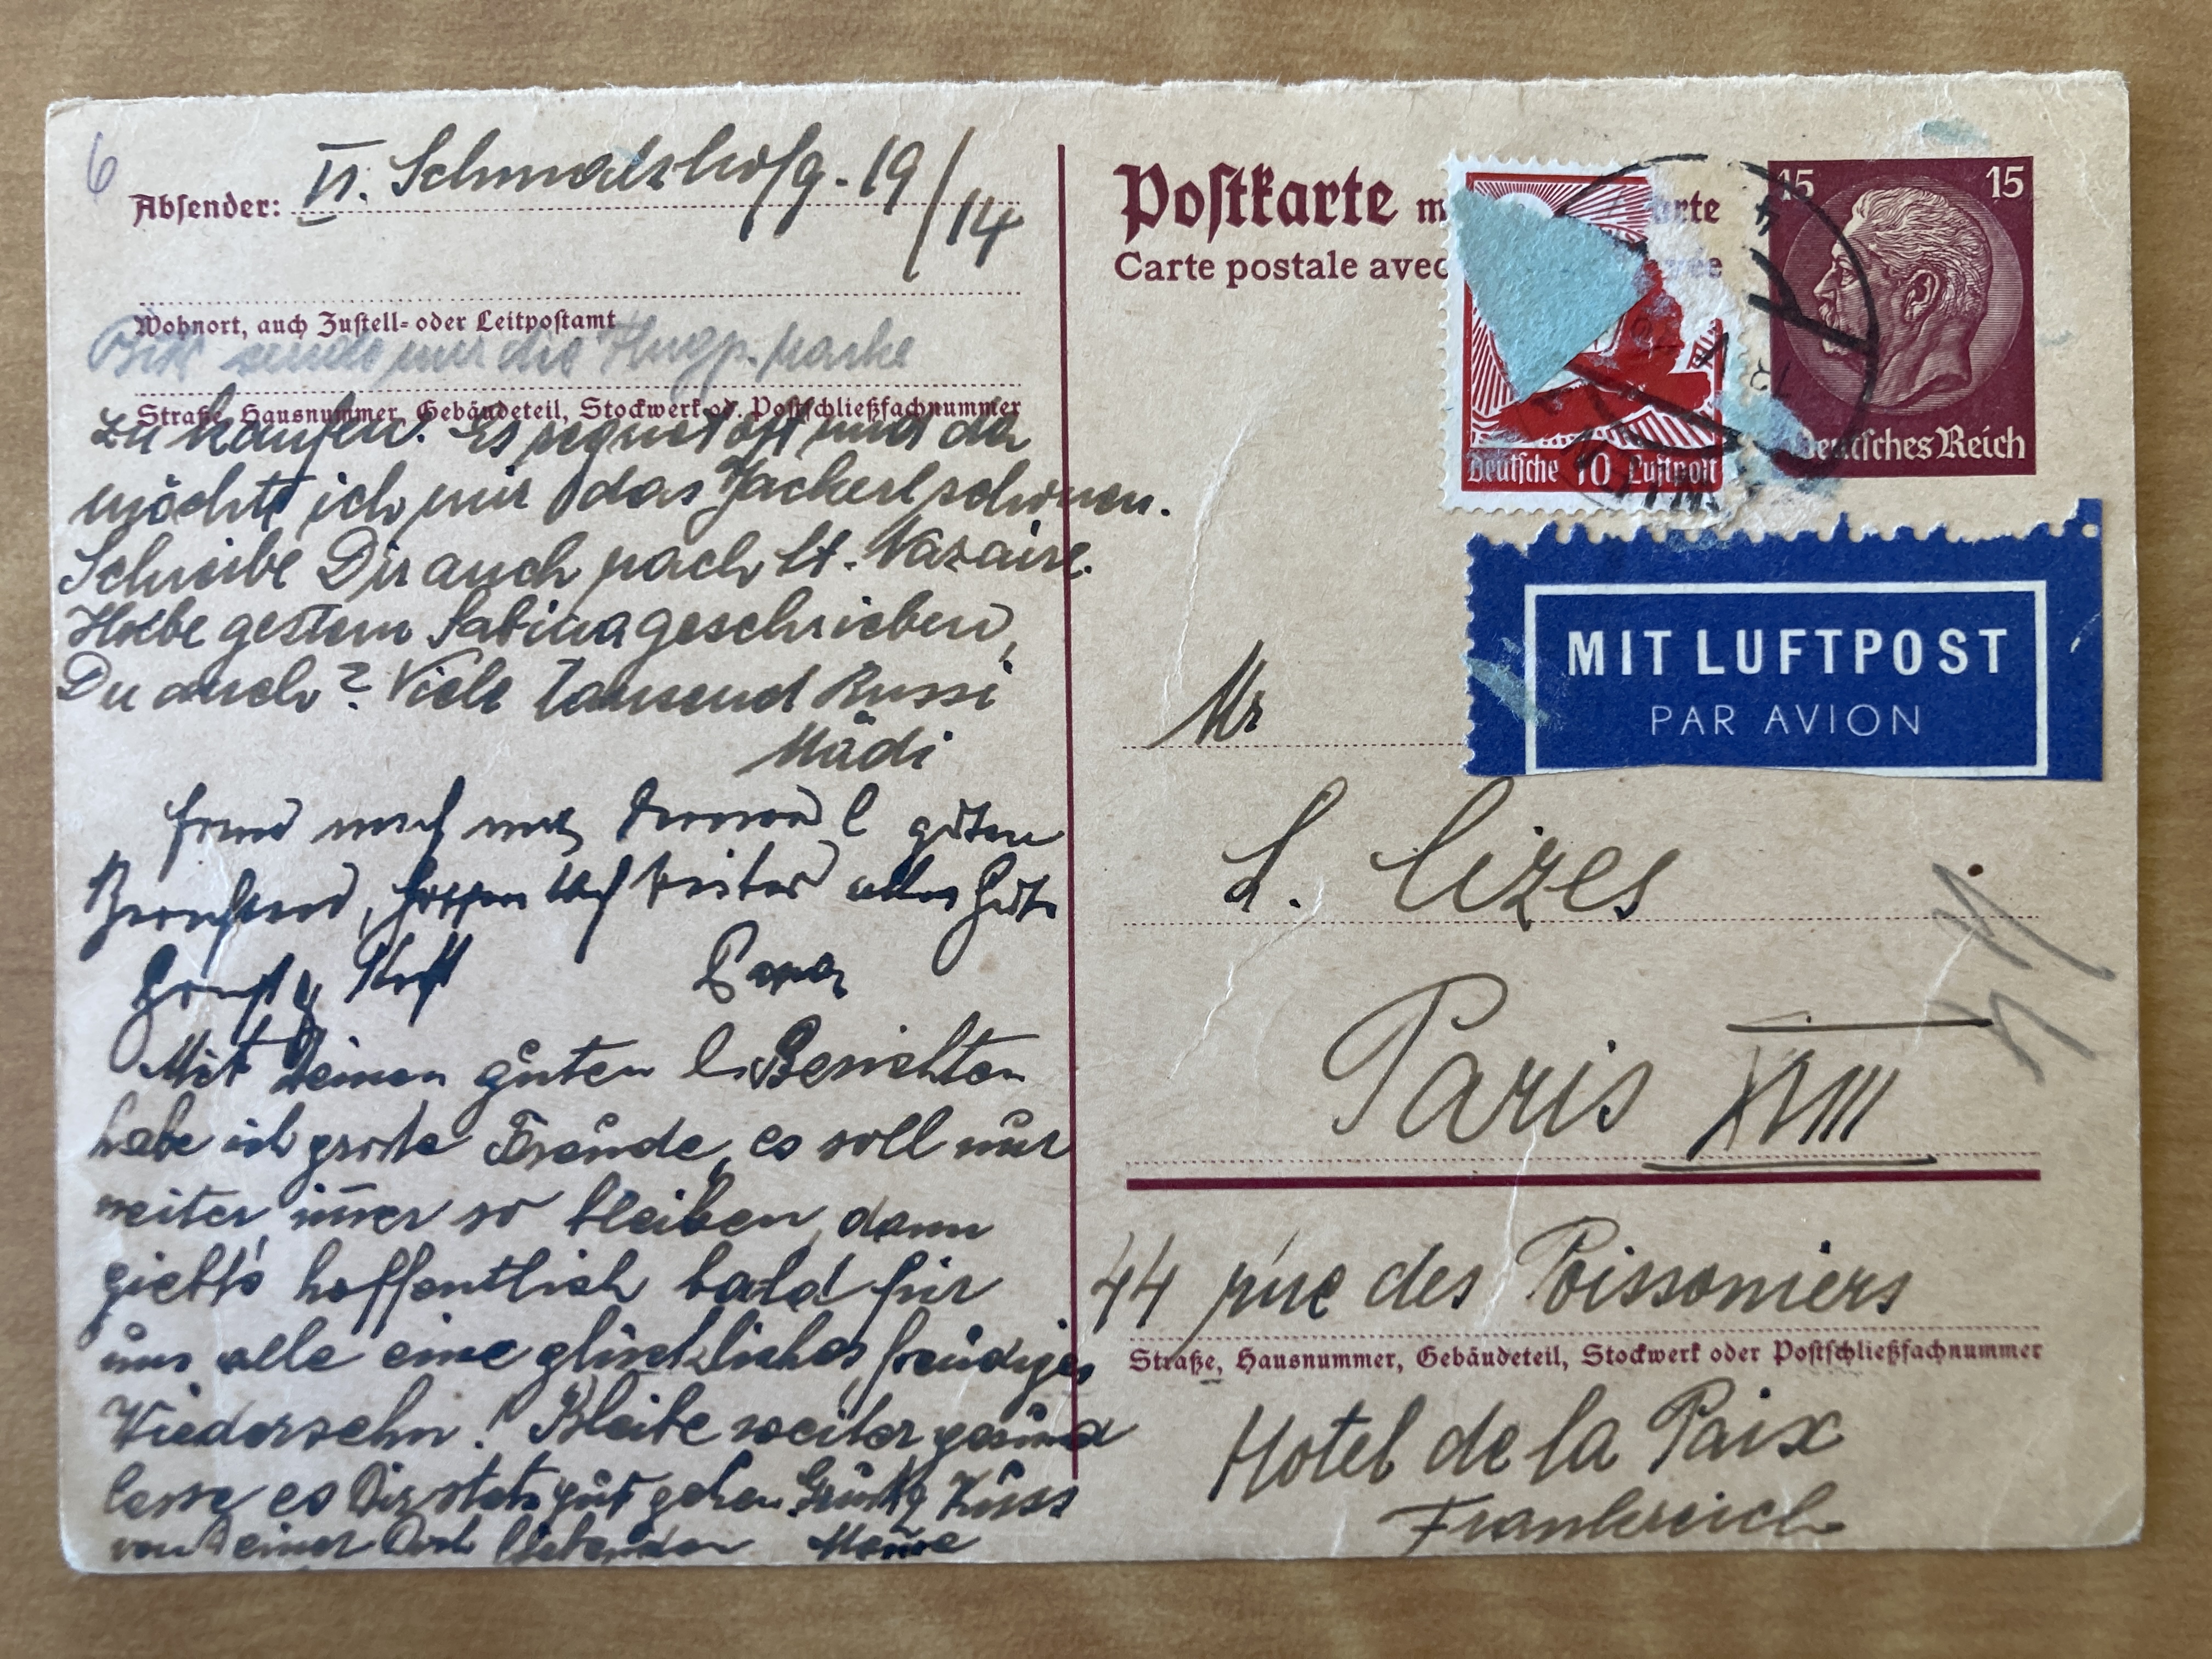 6
Absender: VI. Schmalzhofg. 19/14
Wohnort, auch Zustell- oder Leitpostamt
Bitte sende mir die Flugp. marke
Straße, Hausnummer, Gebäudeteil, Stockwerk od. Postschließfachnummer
zu kaufen. Es regnet oft und da
möchte ich mir das Jackerl schonen.
Schreibe Dir auch nach St. Nazaire.
Habe gestern Sabina geschrieben,
Du auch? Viele Tausend Bussi
Mädi
guten
hoffen auch weiter alles Gute
Papa
Mit Deinen guten l. Berichten
habe ich große Freude, es soll nur
weiter immer so bleiben, dann
giebt's hoffentlich bald für
uns alle eine glückliches, freudiges
Wiedersehn! Bleibe weiter gesund
lasse es Dir stets gut gehen Kuss
von Deiner Dich liebenden Mama
Postkarte m arte
Carte postale avec
15 15
Deutsches Reich
Deutsche 10 Luftpost
MIT LUFTPOST
PAR AVION
Mr
L. Cizes
Paris XVIII
44 rue des Poissoniers
Straße, Hausnummer, Gebäudeteil, Stockwerk oder Postschließfachnummer
Hotel de la Paix
Frankreich